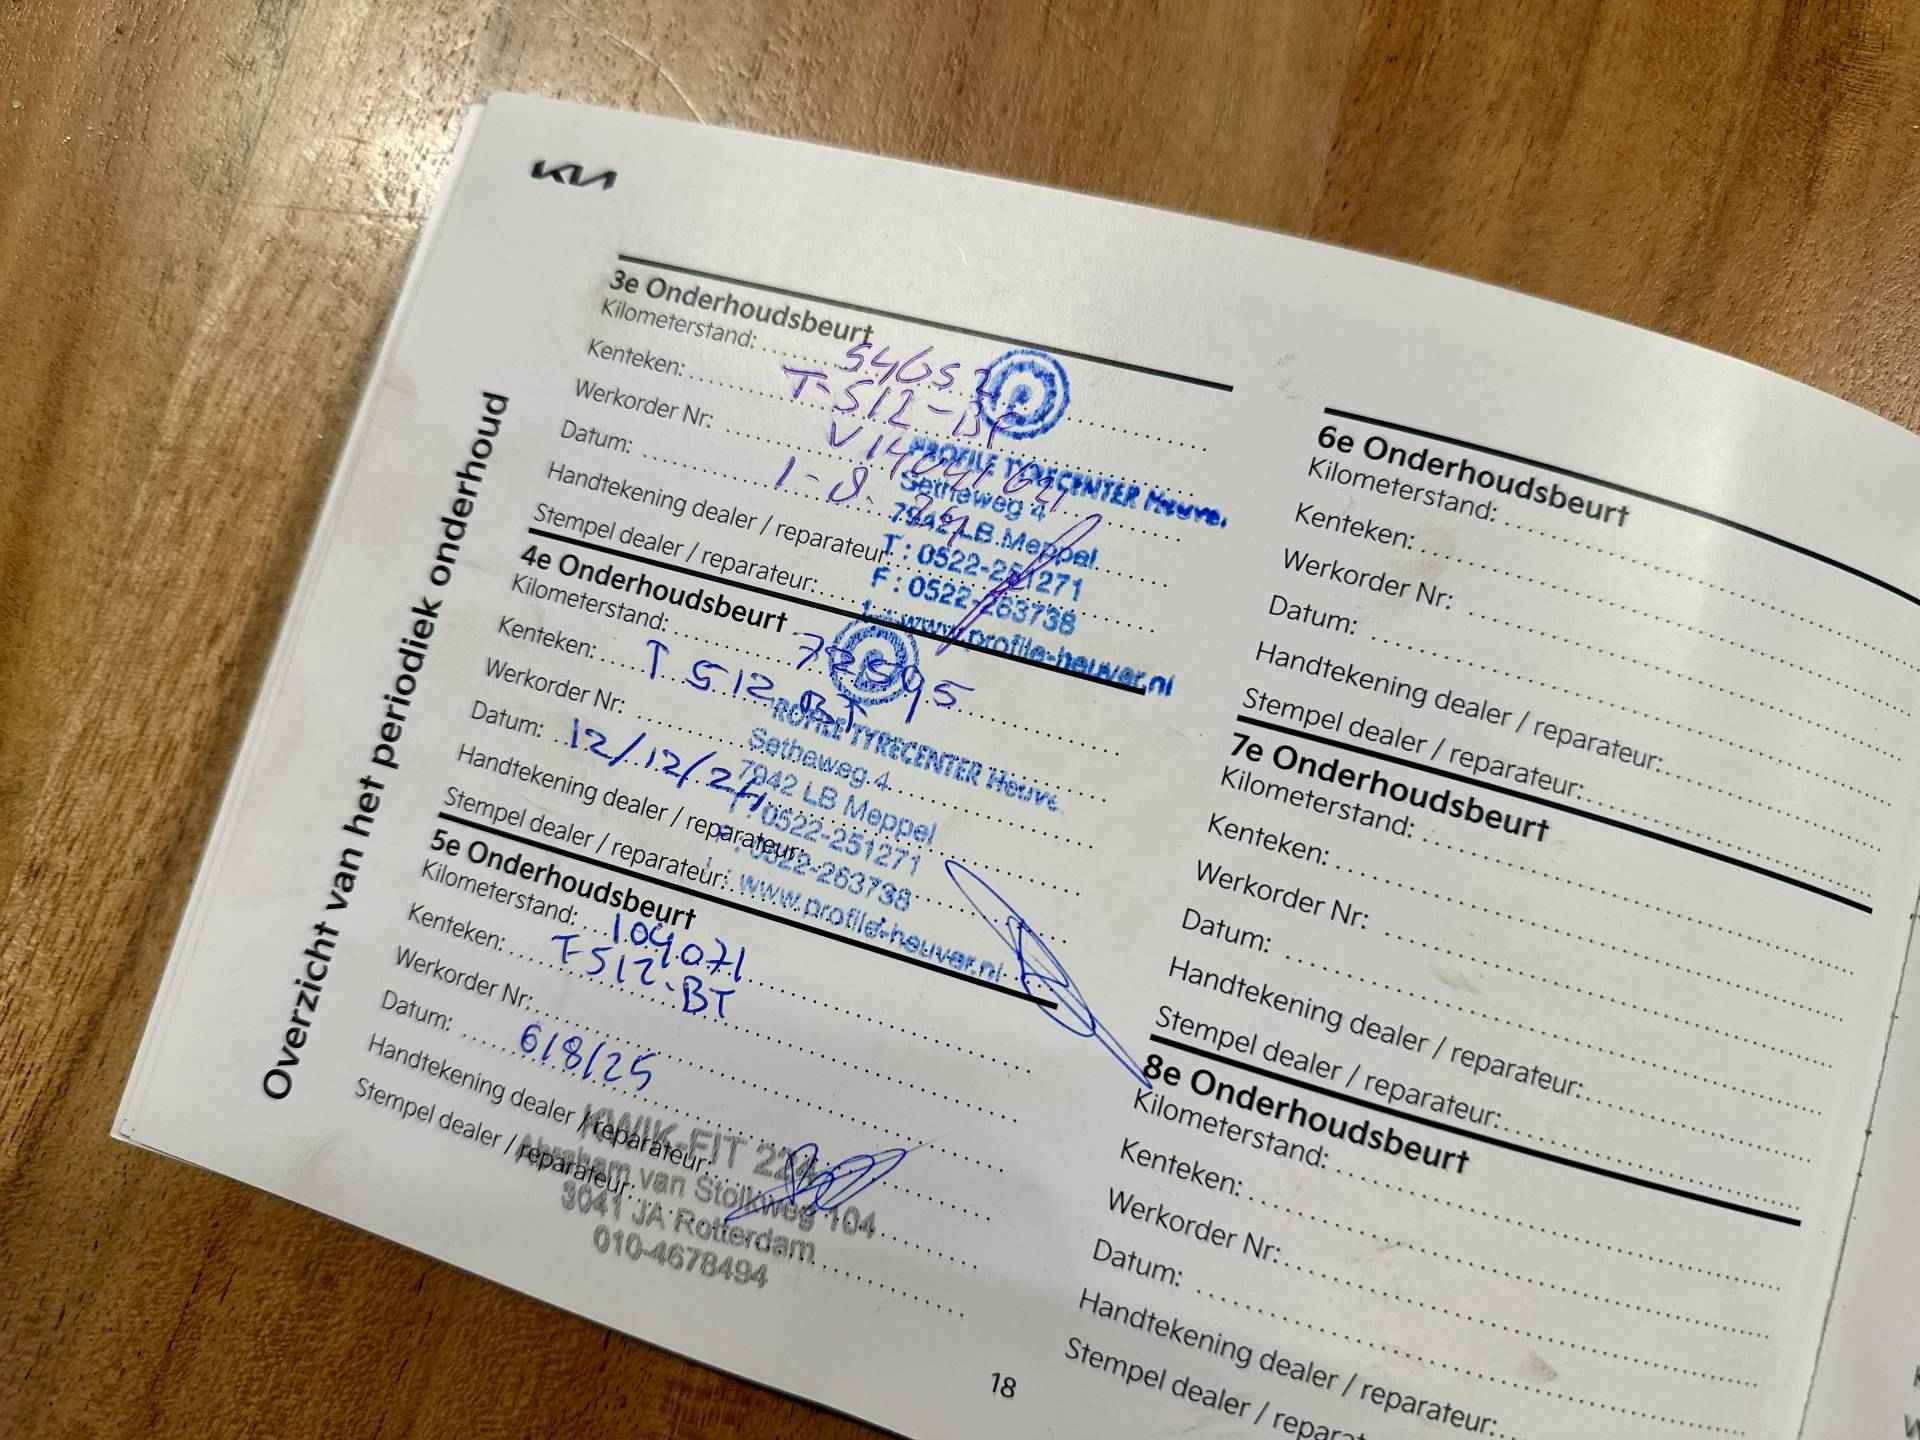 KIA
Overzicht van het periodiek onderhoud
3e Onderhoudsbeurt
Kilometerstand: 54652
Kenteken: T-512-BT
Werkorder Nr:
Datum: 1-8-24
Handtekening dealer / reparateur:
Stempel dealer / reparateur:
PROFILE TYRECENTER Heuver
Setheweg 4
7942 LB Meppel
T : 0522-251271
F : 0522-263738
I : www.profile-heuver.nl
4e Onderhoudsbeurt
Kilometerstand:
Kenteken: T 512 BT
Werkorder Nr:
Datum: 12/12/24
Handtekening dealer / reparateur:
Stempel dealer / reparateur:
PROFILE TYRECENTER Heuve
Setheweg 4
7942 LB Meppel
T : 0522-251271
F : 0522-263738
I : www.profile-heuver.nl
5e Onderhoudsbeurt
Kilometerstand: 104071
Kenteken: T-512-BT
Werkorder Nr:
Datum: 6/8/25
Handtekening dealer / reparateur:
Stempel dealer / reparateur:
KWIK-FIT 224
Abraham van Stolkweg 104
3041 JA Rotterdam
010-4678494
6e Onderhoudsbeurt
Kilometerstand:
Kenteken:
Werkorder Nr:
Datum:
Handtekening dealer / reparateur:
Stempel dealer / reparateur:
7e Onderhoudsbeurt
Kilometerstand:
Kenteken:
Werkorder Nr:
Datum:
Handtekening dealer / reparateur:
Stempel dealer / reparateur:
8e Onderhoudsbeurt
Kilometerstand:
Kenteken:
Werkorder Nr:
Datum:
Handtekening dealer / reparateur:
Stempel dealer / reparat
18